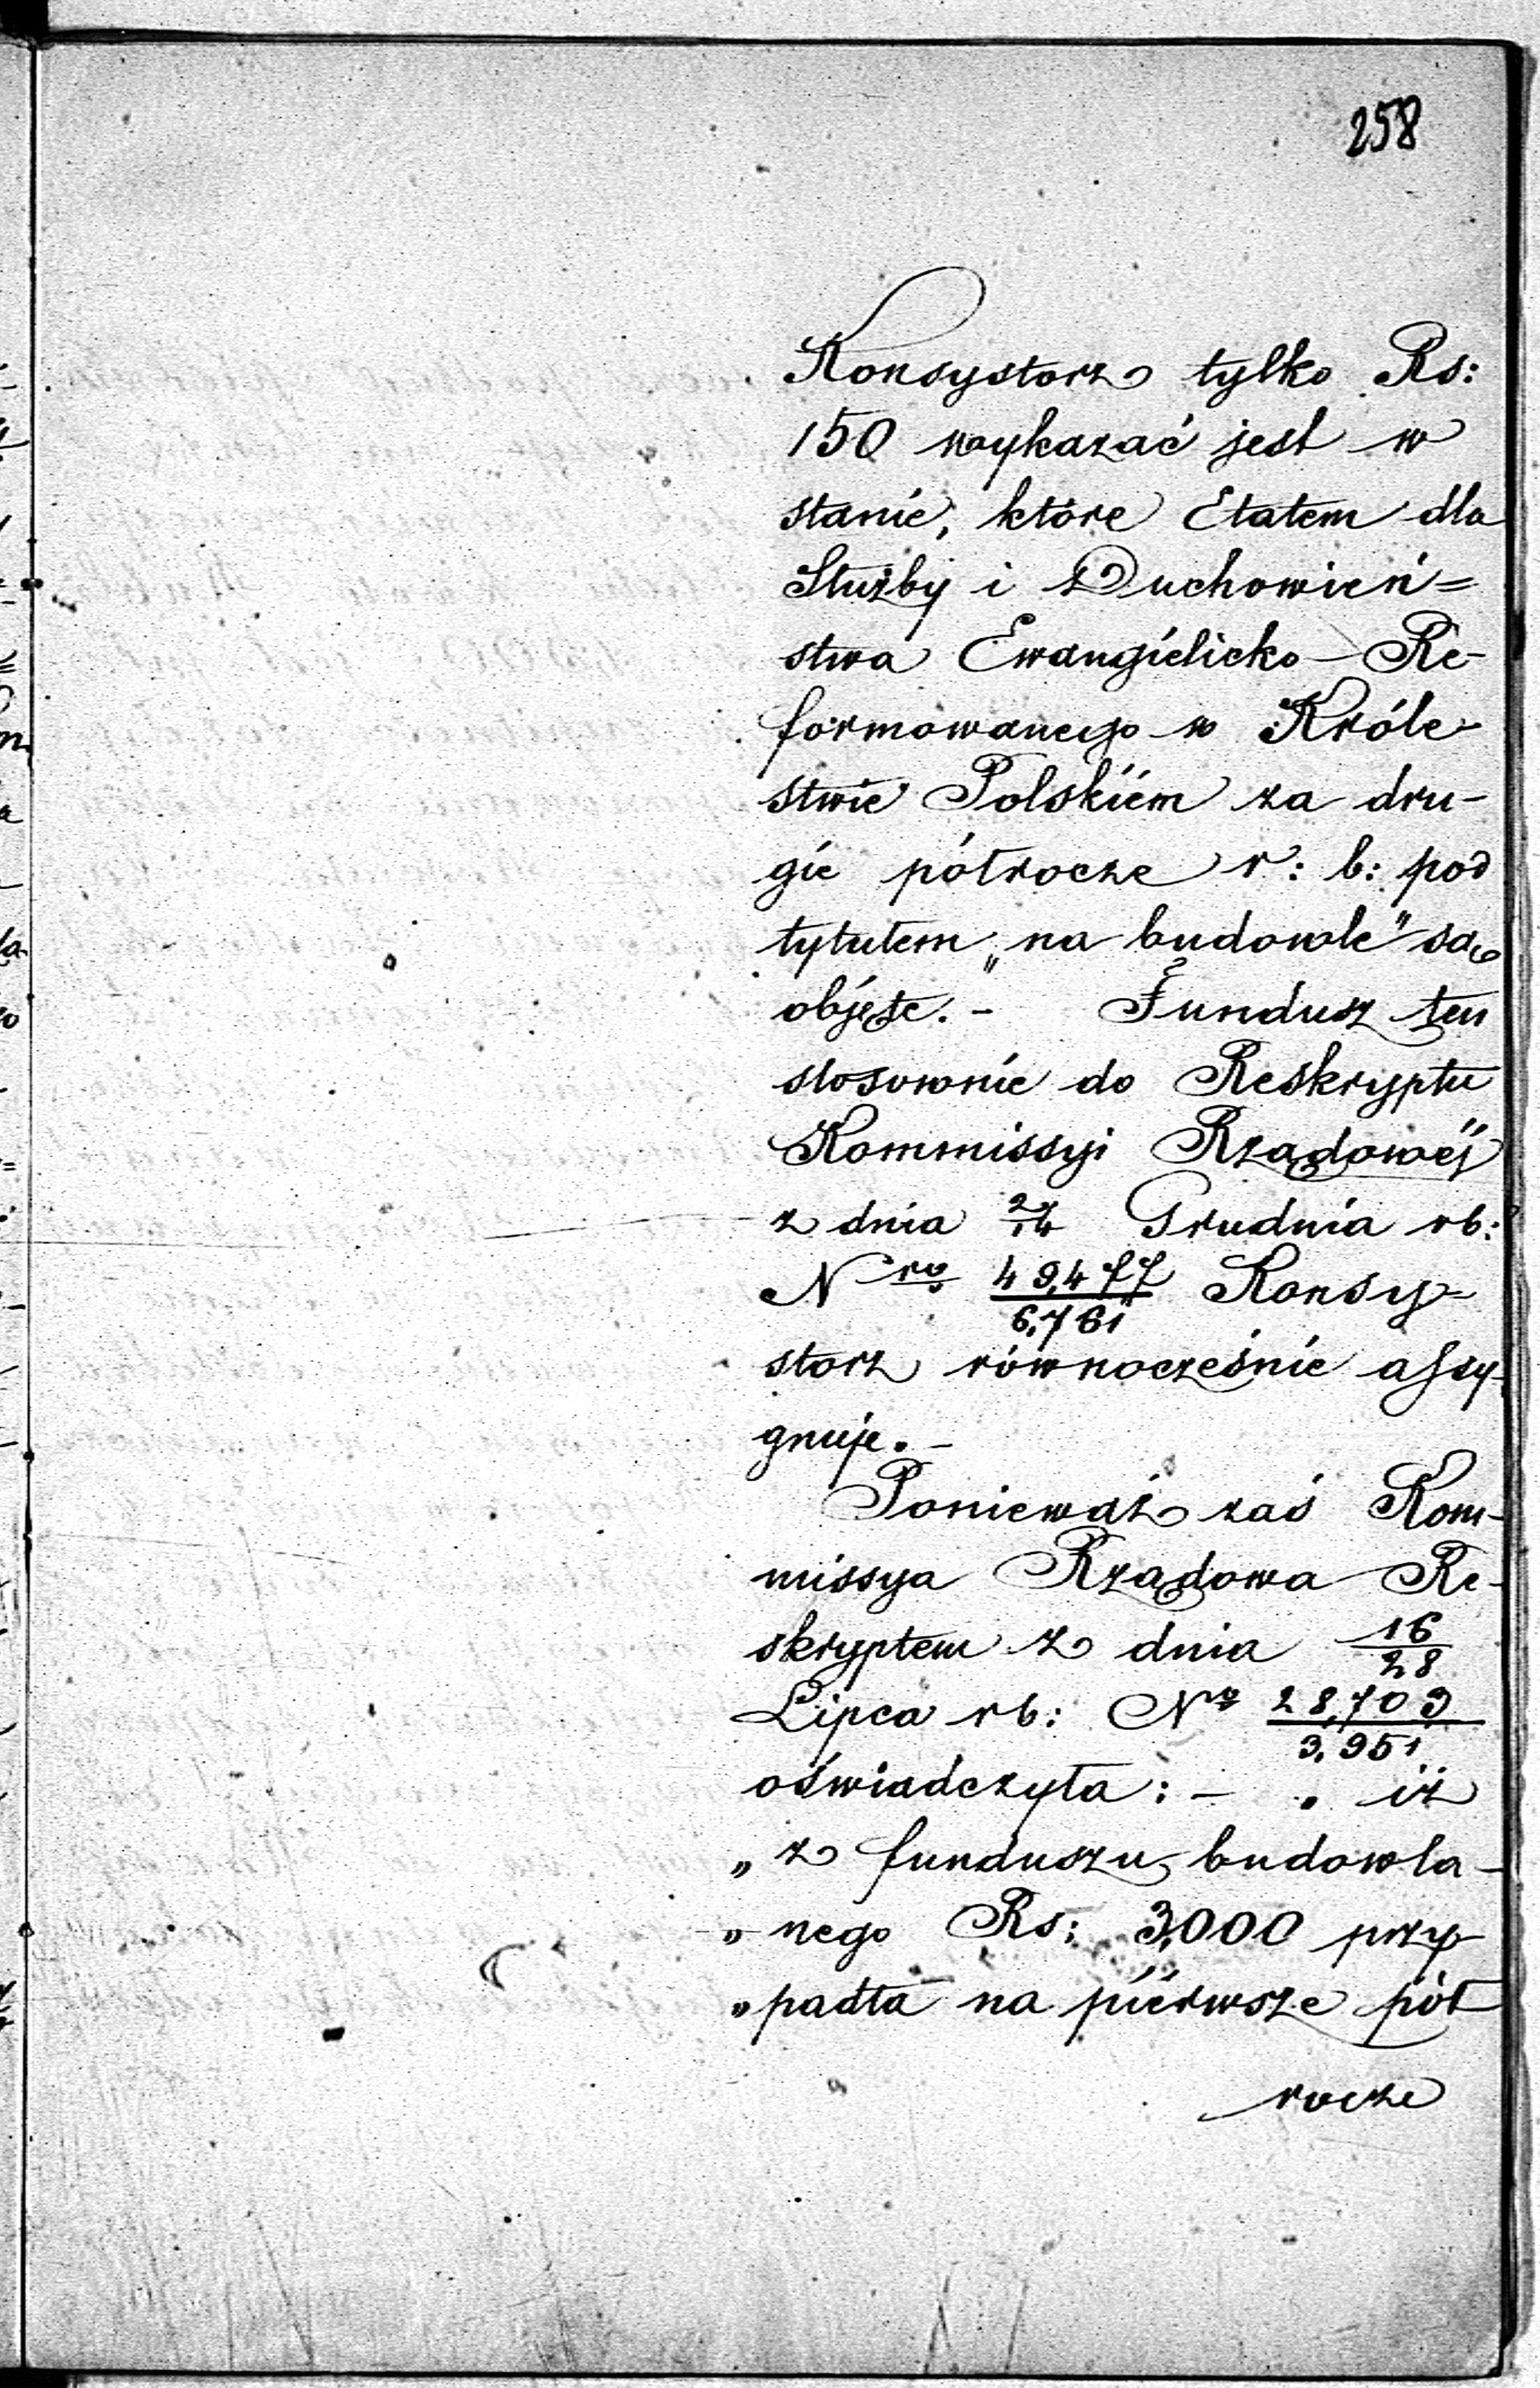 258
Konsystorz tylko Rs:
150 wykazać jest w
stanie, które Etatem dla
Służby i Duchowień=
stwa Ewangielicko-Re-
formowanego w Króle-
stwie Polskiém za dru-
gie półrocze r: b: pod
tytułem „na budowle" są
objęte. - Fundusz ten
stosownie do Reskryptu
Kommissyi Rządowéj
z dnia 2/14 Grudnia rb:
Nro 49,477/6,761 Konsy-
storz równocześnie assy-
gnuje. -
Ponieważ zaś Kom-
missya Rządowa Re-
skryptem z dnia 16/28
Lipca rb: Nr 28,709/3,951
oświadczyła: - iż
„z funduszu budowla-
„nego Rs: 3,000 przy-
„padła na piérwsze pół
rocze